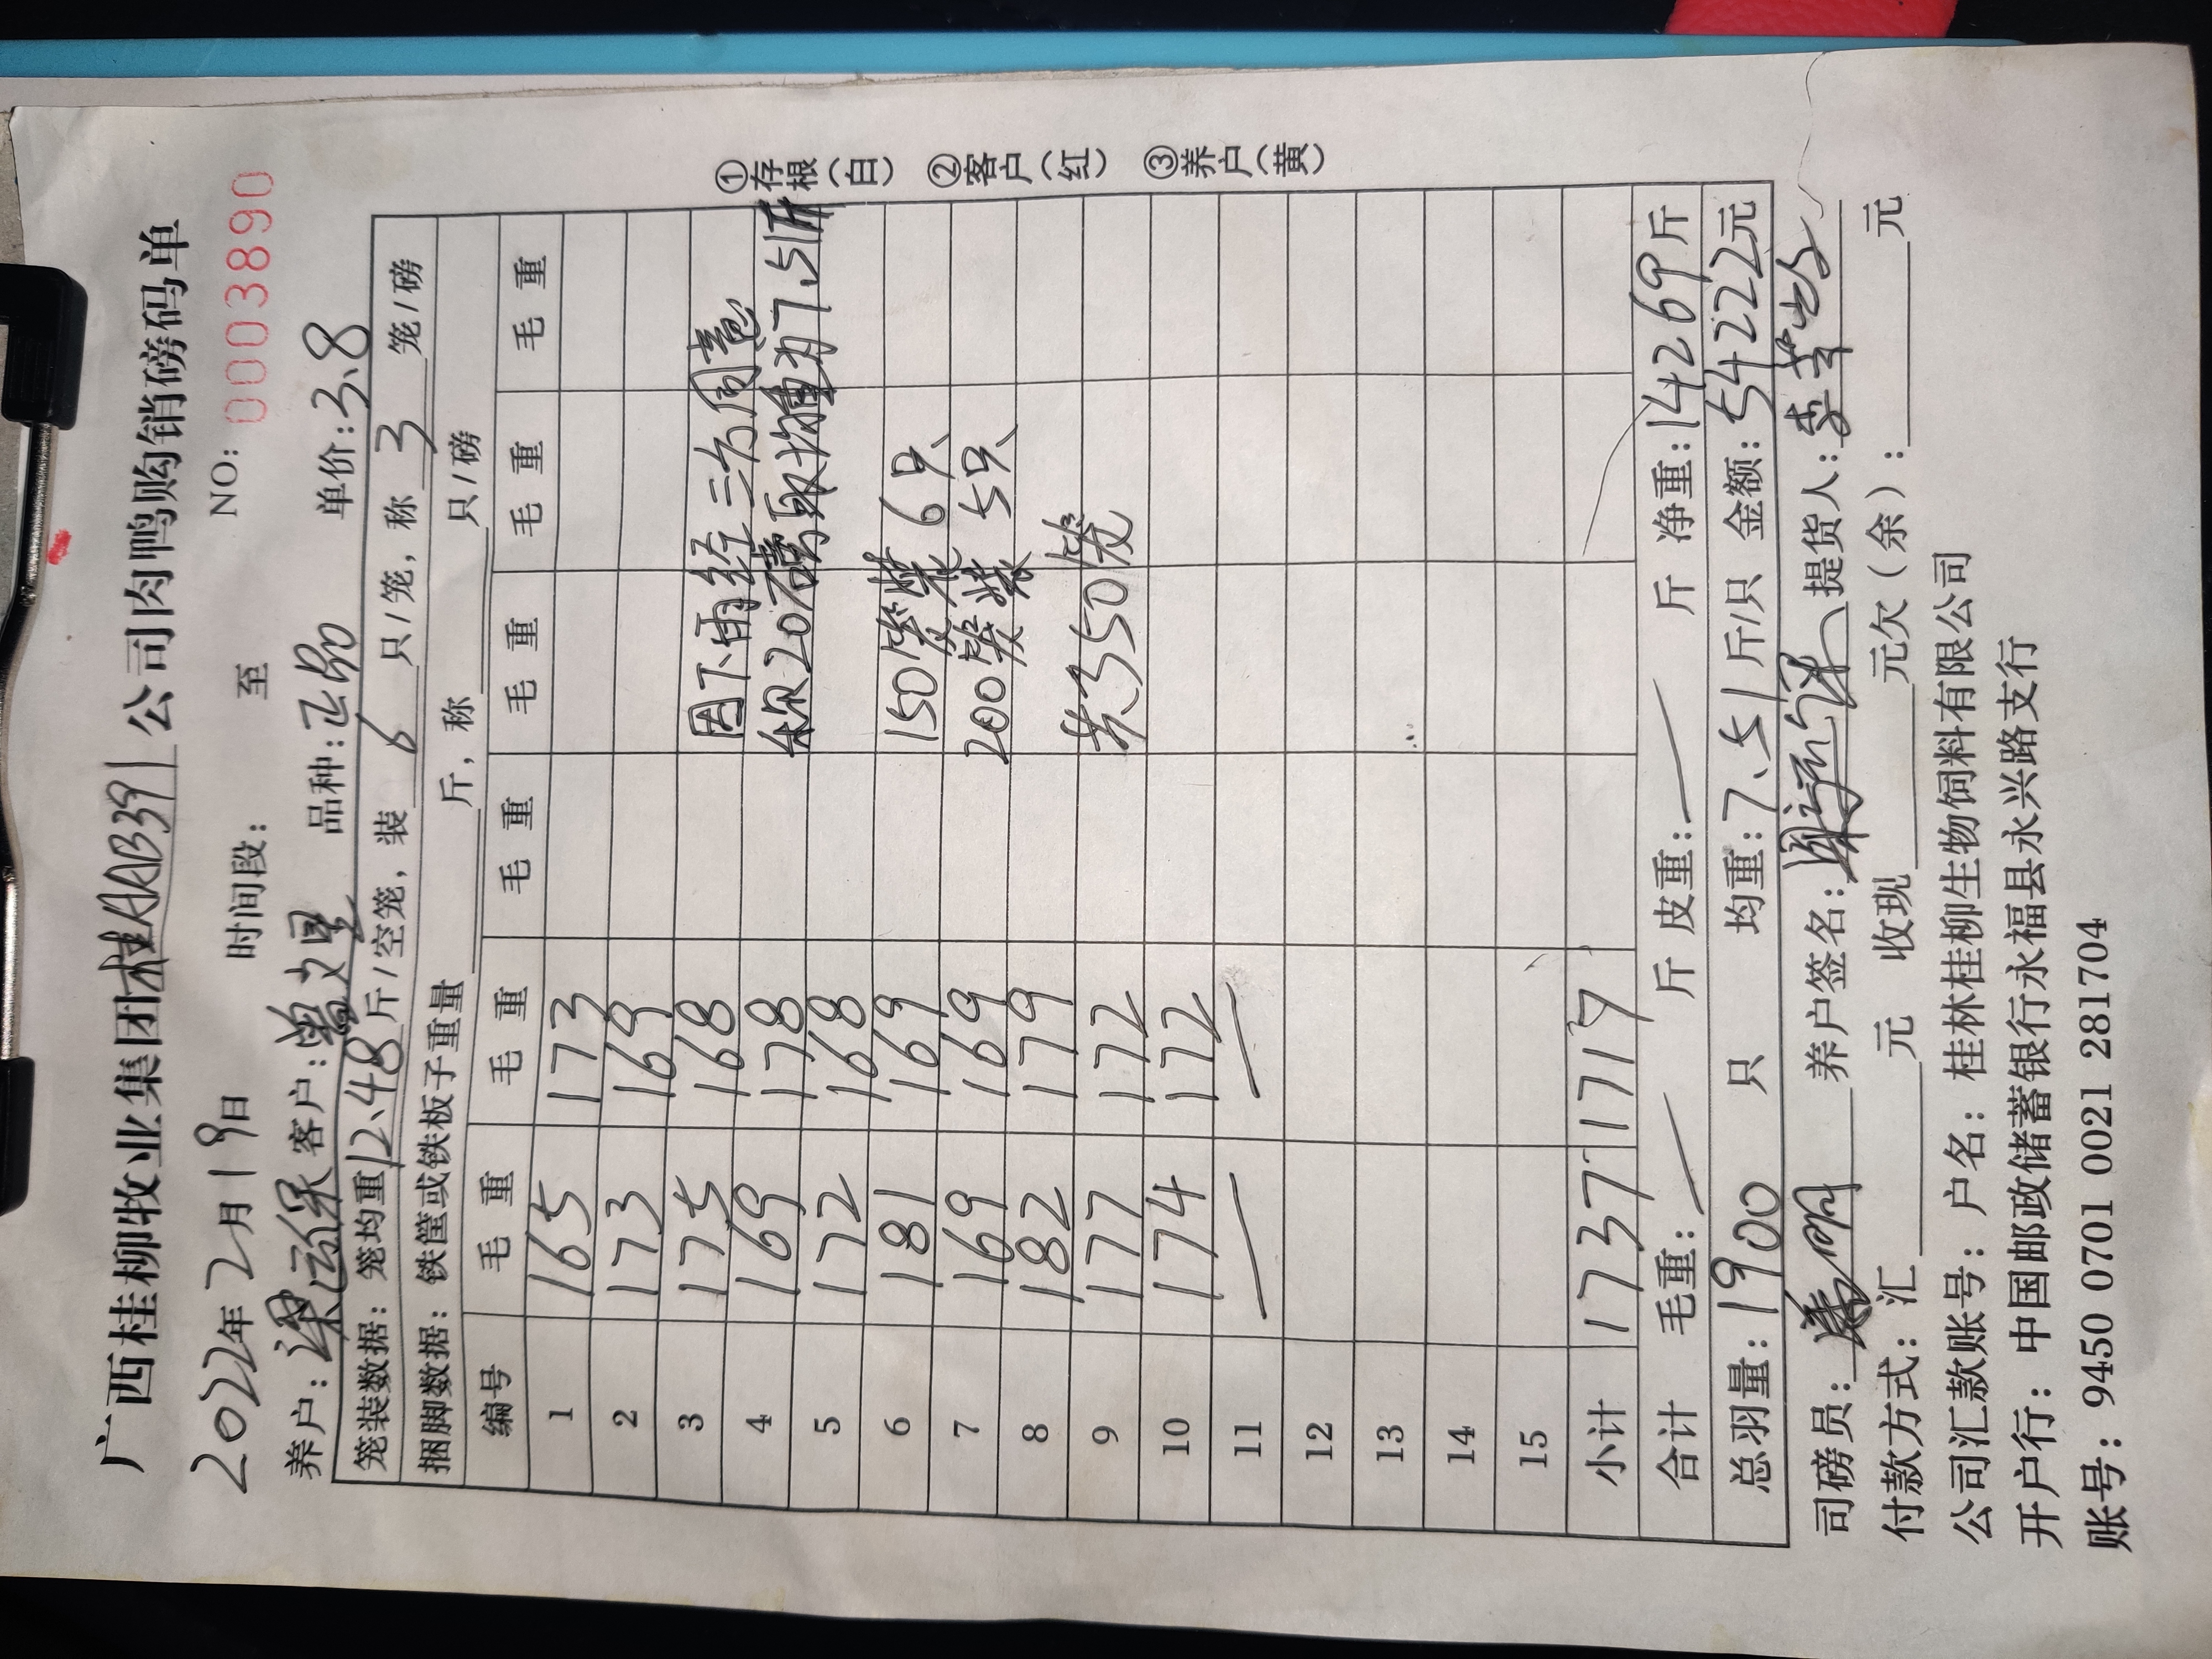 广西桂柳牧业集团桂AAB391公司肉鸭购销磅码单
2022年2月19日 时间段: 至 NO: 0003890
养户: 客户:曾文星 品种:正品 单价:3.8
笼装数据:笼均重12.48斤/空笼,装6只/笼,称3笼/磅
捆脚数据:铁筐或铁板子重量 斤,称 只/磅
编号 毛重 毛重 毛重 毛重 毛重 毛重
1 165 173
2 173 169
3 175 168 因下雨经三方同意
4 169 178 只20磅取均重为7.51斤
5 172 168
6 181 169 150笼装6只
7 169 169 200笼装5只
8 182 179
9 177 172 共350笼
10 174 172
11 — —
12
13
14
15
小计 1737 1717
合计 毛重:— 斤 皮重:— 斤 净重:14269斤
总羽量:1900 只 均重:7.51斤/只 金额:54222元
司磅员: 养户签名: 提货人:
付款方式:汇 元 收现 元欠(余): 元
公司汇款账号:户名:桂林桂柳生物饲料有限公司
开户行:中国邮政储蓄银行永福县永兴路支行
账号:9450 0701 0021 281704
①存根(白) ②客户(红) ③养户(黄)